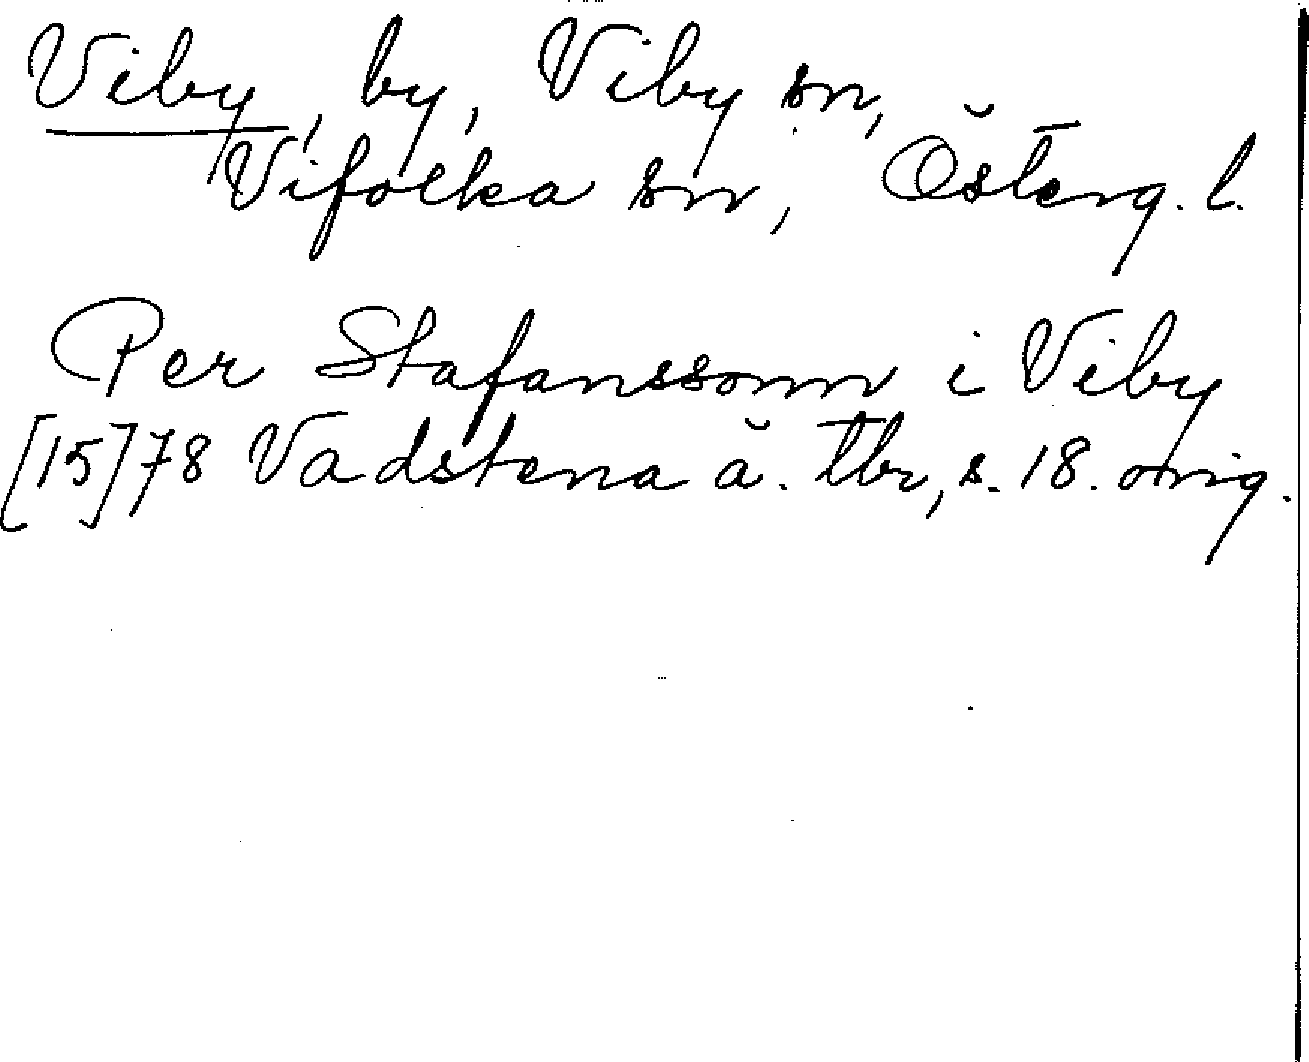 Viby, by, Viby sn,
Vifolka sn, Österg. l.
Per Stafanssonn i Viby
[15]78 Vadstena ä. tbr, s. 18. orig.